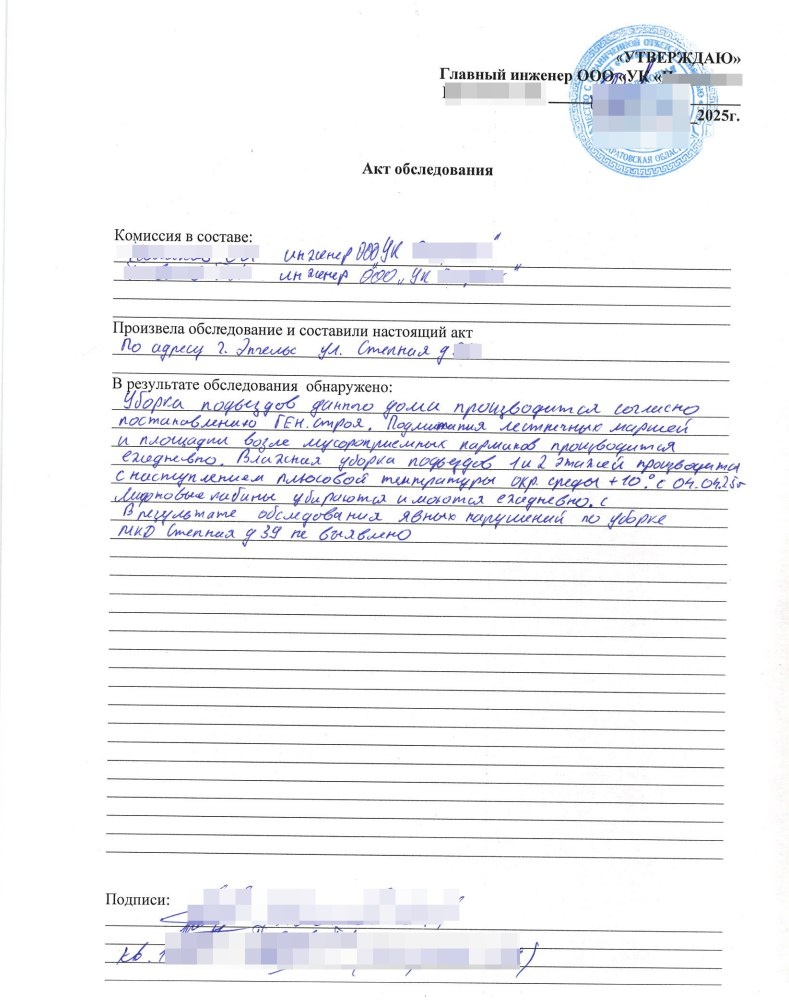 «УТВЕРЖДАЮ»
Главный инженер ООО «УК «П
2025г.
РАТОВСКАЯ ОБЛАС
Акт обследования
Комиссия в составе:
инженер ООО „УК "
инженер ООО „УК "
Произвела обследование и составили настоящий акт
По адресу г. Энгельс ул. Степная д.
В результате обследования обнаружено:
Уборка подъездов данного дома производится согласно
постановлению ГЕН. строя. Подметания лестничных маршей
и площадки возле мусороприемных карманов производится
ежедневно. Влажная уборка подъездов 1 и 2 этажей производится
с наступлением плюсовой температуры окр. среды +10° с 04.04.25г
Лифтовые кабины убираются и моются ежедневно. с
В результате обследования явных нарушений по уборке
МКД Степная д 39 не выявлено
Подписи:
кв. 1